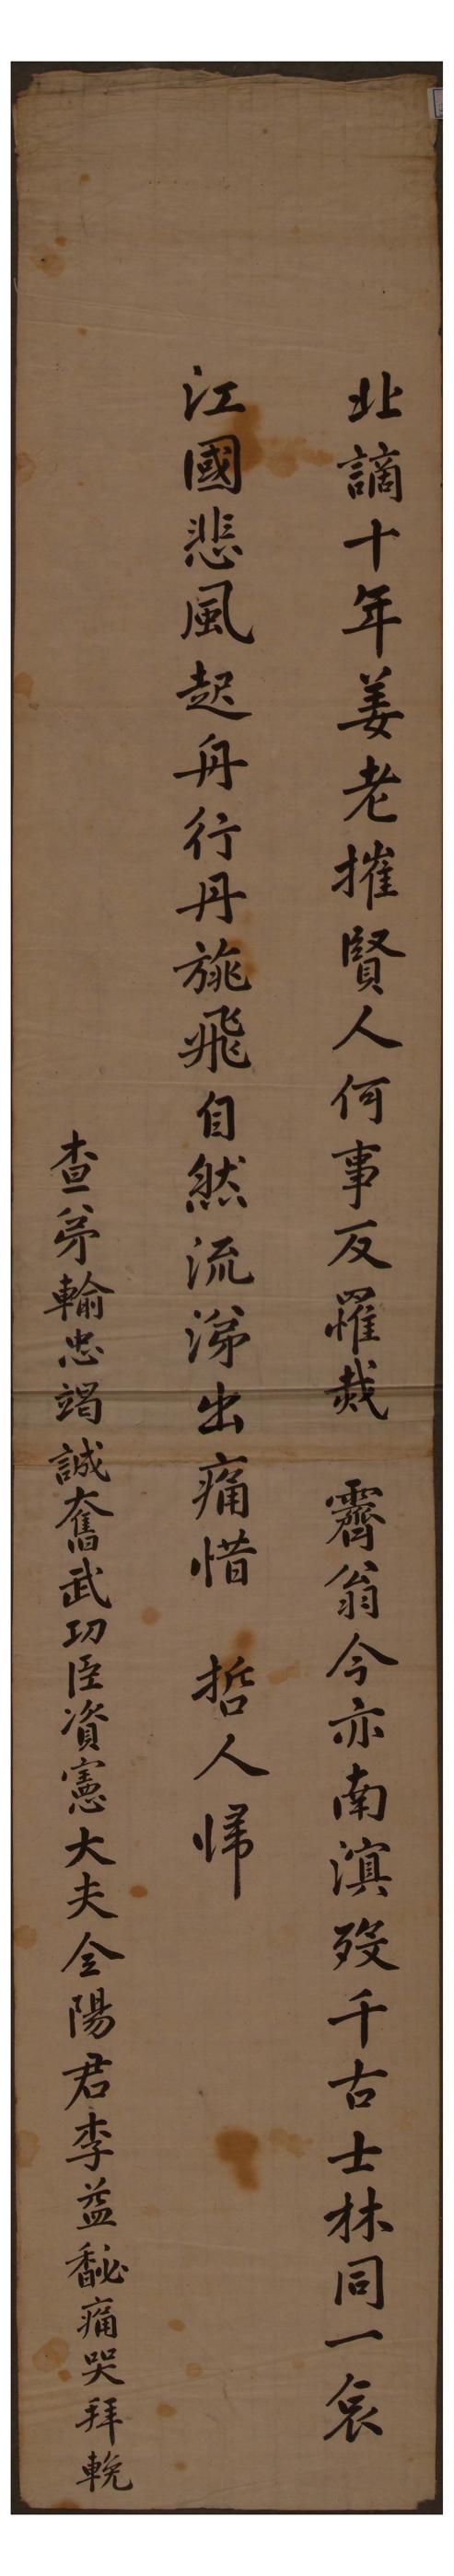 北謫十年姜老摧賢人何事反罹烖　霽翁今亦南溟歿千古士林同一哀
江國悲風起舟行丹旐飛自然流涕出痛惜　哲人歸
査弟輸忠竭誠奮武功臣資憲大夫全陽君李益馝痛哭拜輓